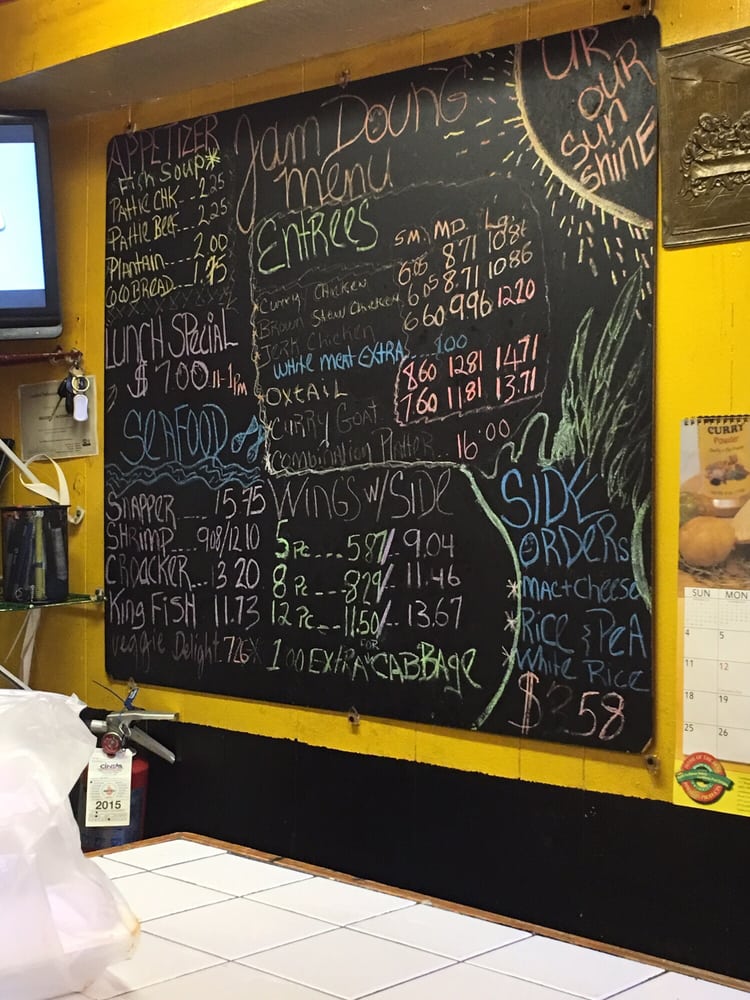 Jam Doung
menu
UR
OUR
Sun
shine
APPETIZER
Fish Soup*
Pattie CHK -- 2.25
Pattie Beef -- 2.25
Plantain --- 2.00
COCO BREAD -- 1.75
LUNCH SPECIAL
$7.00 11-1pm
SEAFOOD
SNAPPER 15.75
SHRIMP 908/1210
CROACKER 13 20
KING FISH 11.73
veggie Delight 726
ENTREES
SM. MD. LG.
Curry Chicken 6.05 8.71 10.86
Brown Stew Chicken 6 05 8.71 10 86
Jerk Chicken 6 60 9 96 12 10
White meat EXTRA 1.00
OXTAIL 8 60 12 81 14.71
CURRY GOAT 7 60 11 81 13.71
Combination Platter 16.00
WINGS W/ SIDE
5 Pc --- 5 87/ 9.04
8 Pc --- 8 29/ 11.46
12 Pc -- 11 50/ 13.67
FOR
1 00 EXTRA CABBAGE
SIDE
ORDERS
*mac+cheese
*Rice & PeA
*White Rice
58
CURRY
Powder
SUN MON
4 5
11 12
18 19
25 26
2015